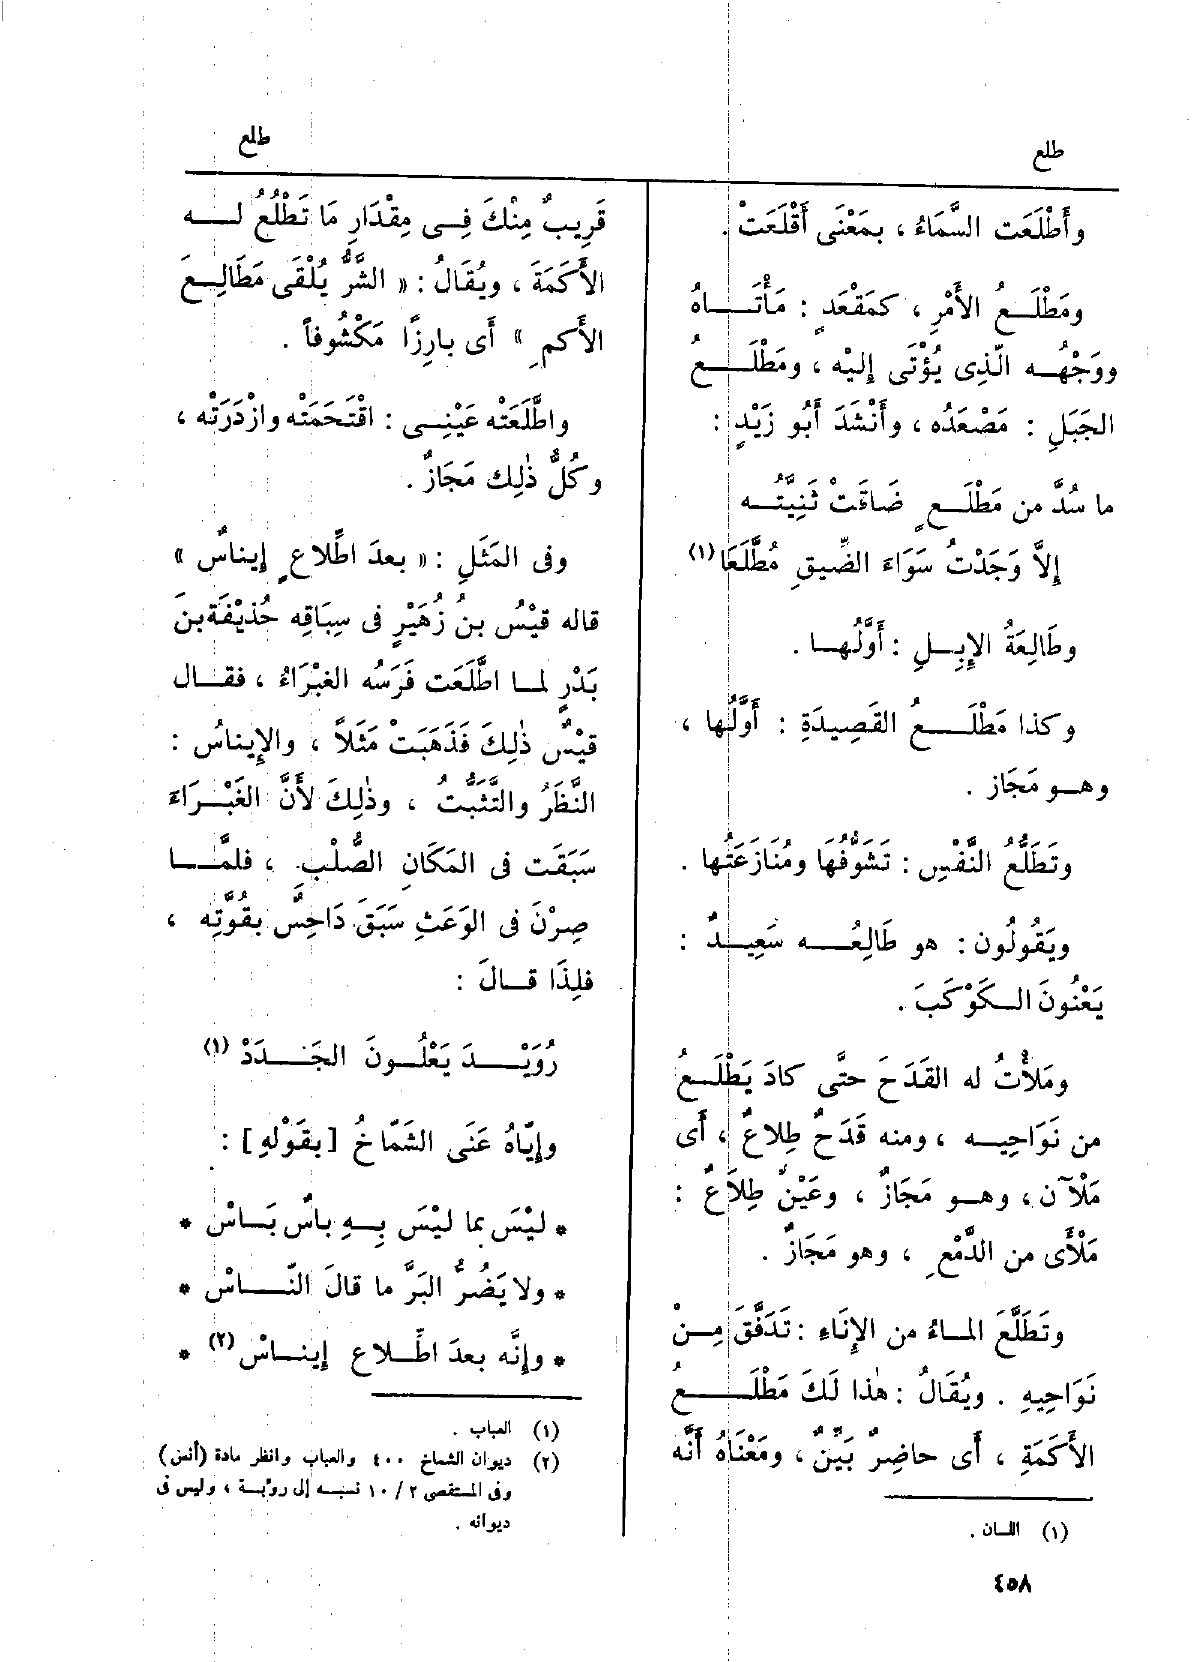 طلع
طلع
وأَطْلَعَت السَّمَاءُ ، بمَعْنَى أَقْلَعَتْ .
ومَطْلَعُ الأَمْرِ ، كمَقْعَدٍ : مَأْتَاهُ
ووَجْهُه الَّذِى يُؤْتَى إِلَيْه ، ومَطْلَعُ
الجَبَلِ : مَصْعَدُه ، وأَنْشَدَ أَبُو زَيْدٍ :
ما سُدَّ من مَطْلَعٍ ضَاقَتْ ثَنِيَّتُه
إِلاَّ وَجَدْتُ سَوَاءَ الضِّيقِ مُطَّلَعَا (١)
وطَالِعَةُ الإِبِلِ : أَوَّلُها .
وكذا مَطْلَعُ القَصِيدَةِ : أَوَّلُها ،
وهو مَجَاز .
وتَطَلُّعُ النَّفْسِ : تَشَوُّفُهَا ومُنَازَعَتُها .
ويَقُولُون : هو طَالِعُه سَعِيدٌ :
يَعْنُونَ الكَوْكَبَ .
ومَلأْتُ له القَدَحَ حتَّى كادَ يَطْلَعُ
من نَوَاحِيه ، ومنه قَدَحٌ طِلاعٌ ، أَى
مَلْآن ، وهو مَجَازٌ ، وعَيْنٌ طِلاَعٌ :
مَلْأَى من الدَّمْعِ ، وهو مَجَازٌ .
وتَطَلَّعَ الماءُ من الإِنَاءِ : تَدَفَّقَ مِنْ
نَوَاحِيهِ . ويُقَالُ : هٰذا لَكَ مَطْلَعُ
الأَكَمَةِ ، أَى حاضِرٌ بَيِّنٌ ، ومَعْنَاهُ أَنَّه
(١) اللسان .
قَرِيبٌ مِنْكَ فِى مِقْدَارِ مَا تَطْلُعُ لَه
الأَكَمَةَ ، ويُقَالُ : « الشَّرُّ يُلْقَى مَطَالِعَ
الأَكمِ » أَى بارِزًا مَكْشُوفاً .
واطَّلَعَتْه عَيْنِى : اقْتَحَمَتْه وازْدَرَتْه ،
وكُلُّ ذٰلِك مَجَازٌ .
وفى المَثَلِ : « بعدَ اطِّلاعٍ إِيناسٌ »
قاله قَيْسُ بنُ زُهَيْرٍ فى سِبَاقِه حُذَيْفَةَ بنَ
بَدْرٍ لما اطَّلَعَت فَرَسُه الغَبْرَاءُ ، فقال
قيْسٌ ذٰلِكَ فَذَهَبَتْ مَثَلاً ، والإِيناسُ :
النَّظَرُ والتَّثَبُّتُ ، وذٰلِكَ لأَنَّ الغَبْرَاءَ
سَبَقَت فى المَكَانِ الصُّلْبِ ، فلمَّا
صِرْنَ فى الوَعَثِ سَبَقَ دَاحِسٌ بقُوَّتِه ،
فلِذَا قالَ :
رُوَيْدَ يَعْلُونَ الجَدَدْ (١)
وإِيَّاهُ عَنَى الشَّمَّاخُ [بقَوْلِهِ] :
* لَيْسَ بما لَيْسَ بِهِ باسٌ بَاسْ *
* ولا يَضُرُّ البَرَّ ما قالَ النّاسْ *
* وإِنَّه بعدَ اطِّلاعٍ إِيناسْ (٢) *
(١) العباب .
(٢) ديوان الشماخ ٤٠٠ والعباب وانظر مادة (أنس)
وفى المستقصى ٢ / ١٠ نسبه إلى رؤبة ، وليس فى
ديوانه .
٤٥٨